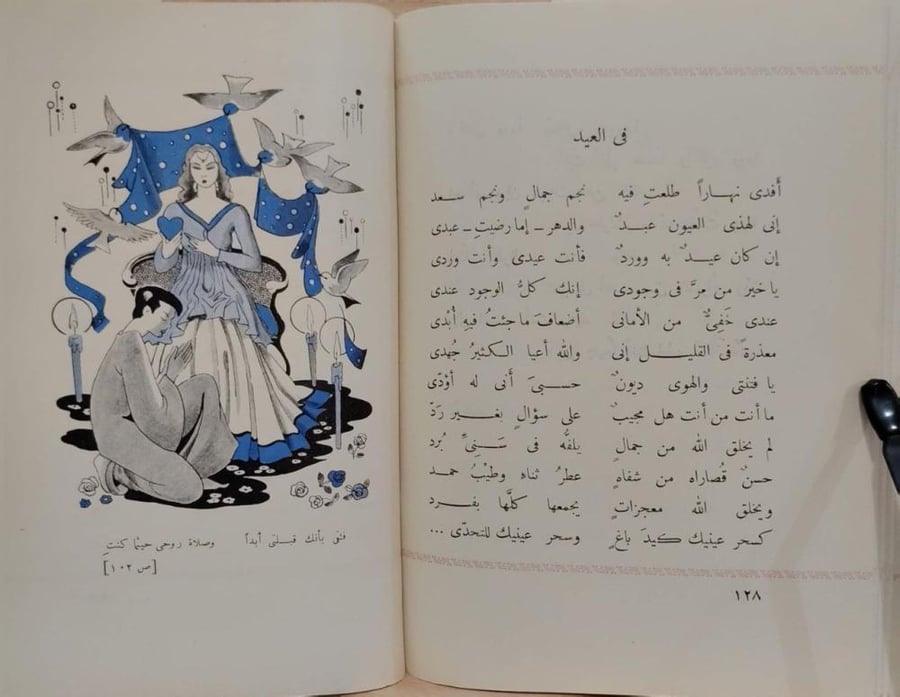 فى العيد
أَفدى نهاراً طلعتِ فيه نجم جمالٍ ونجم سعد
إنى لهذى العيون عبدٌ والدهر ــ إما رضيتِ ــ عبدى
إن كان عيدٌ به ووردٌ فأنت عيدى وأنت وردى
يا خير من مرَّ فى وجودى إنك كلُّ الوجود عندى
عندى خَفِىٌّ من الأمانى أضعافَ ما جئتُ فيهِ أُبْدى
معذرةً فى القليل إنى والله أعيا الكثيرُ جُهدى
يا فتنتى والهوى ديونٌ حسبىَ أنى له أؤدّى
ما أنت من أنت هل مجيبٌ على سؤالٍ بغير ردّ
لم يخلق الله من جمالٍ يلفّه فى سَنِىِّ بُرد
حسنٌ قُصاراه من شفاهٍ عطرُ ثناه وطيْبُ حمد
ويخلق الله معجزاتٍ يجمعها كلَّها بفرد
كسحر عينيك كيدَ باغٍ وسحر عينيك للتحدّى ...
١٢٨
فثقى بأنك قبلتى أبداً وصلاة روحى حيثما كنتِ
[ص ١٠٢]